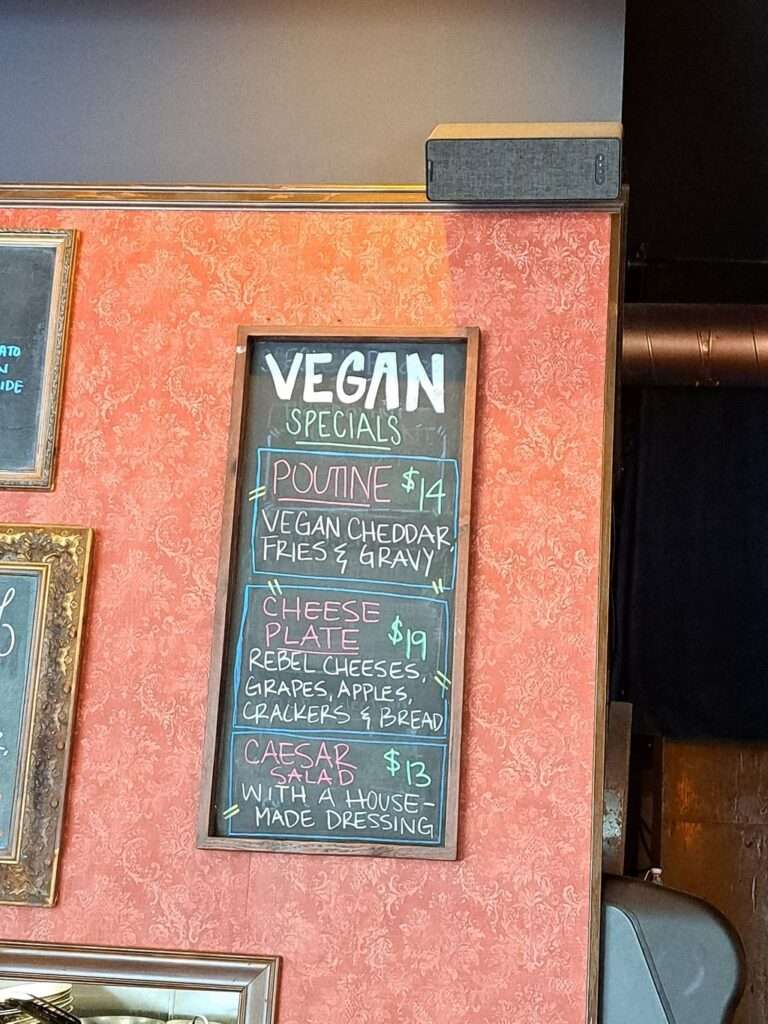 VEGAN
SPECIALS
POUTINE $14
VEGAN CHEDDAR,
FRIES & GRAVY
CHEESE
PLATE $19
REBEL CHEESES,
GRAPES, APPLES,
CRACKERS & BREAD
CAESAR $13
SALAD
WITH A HOUSE-
MADE DRESSING